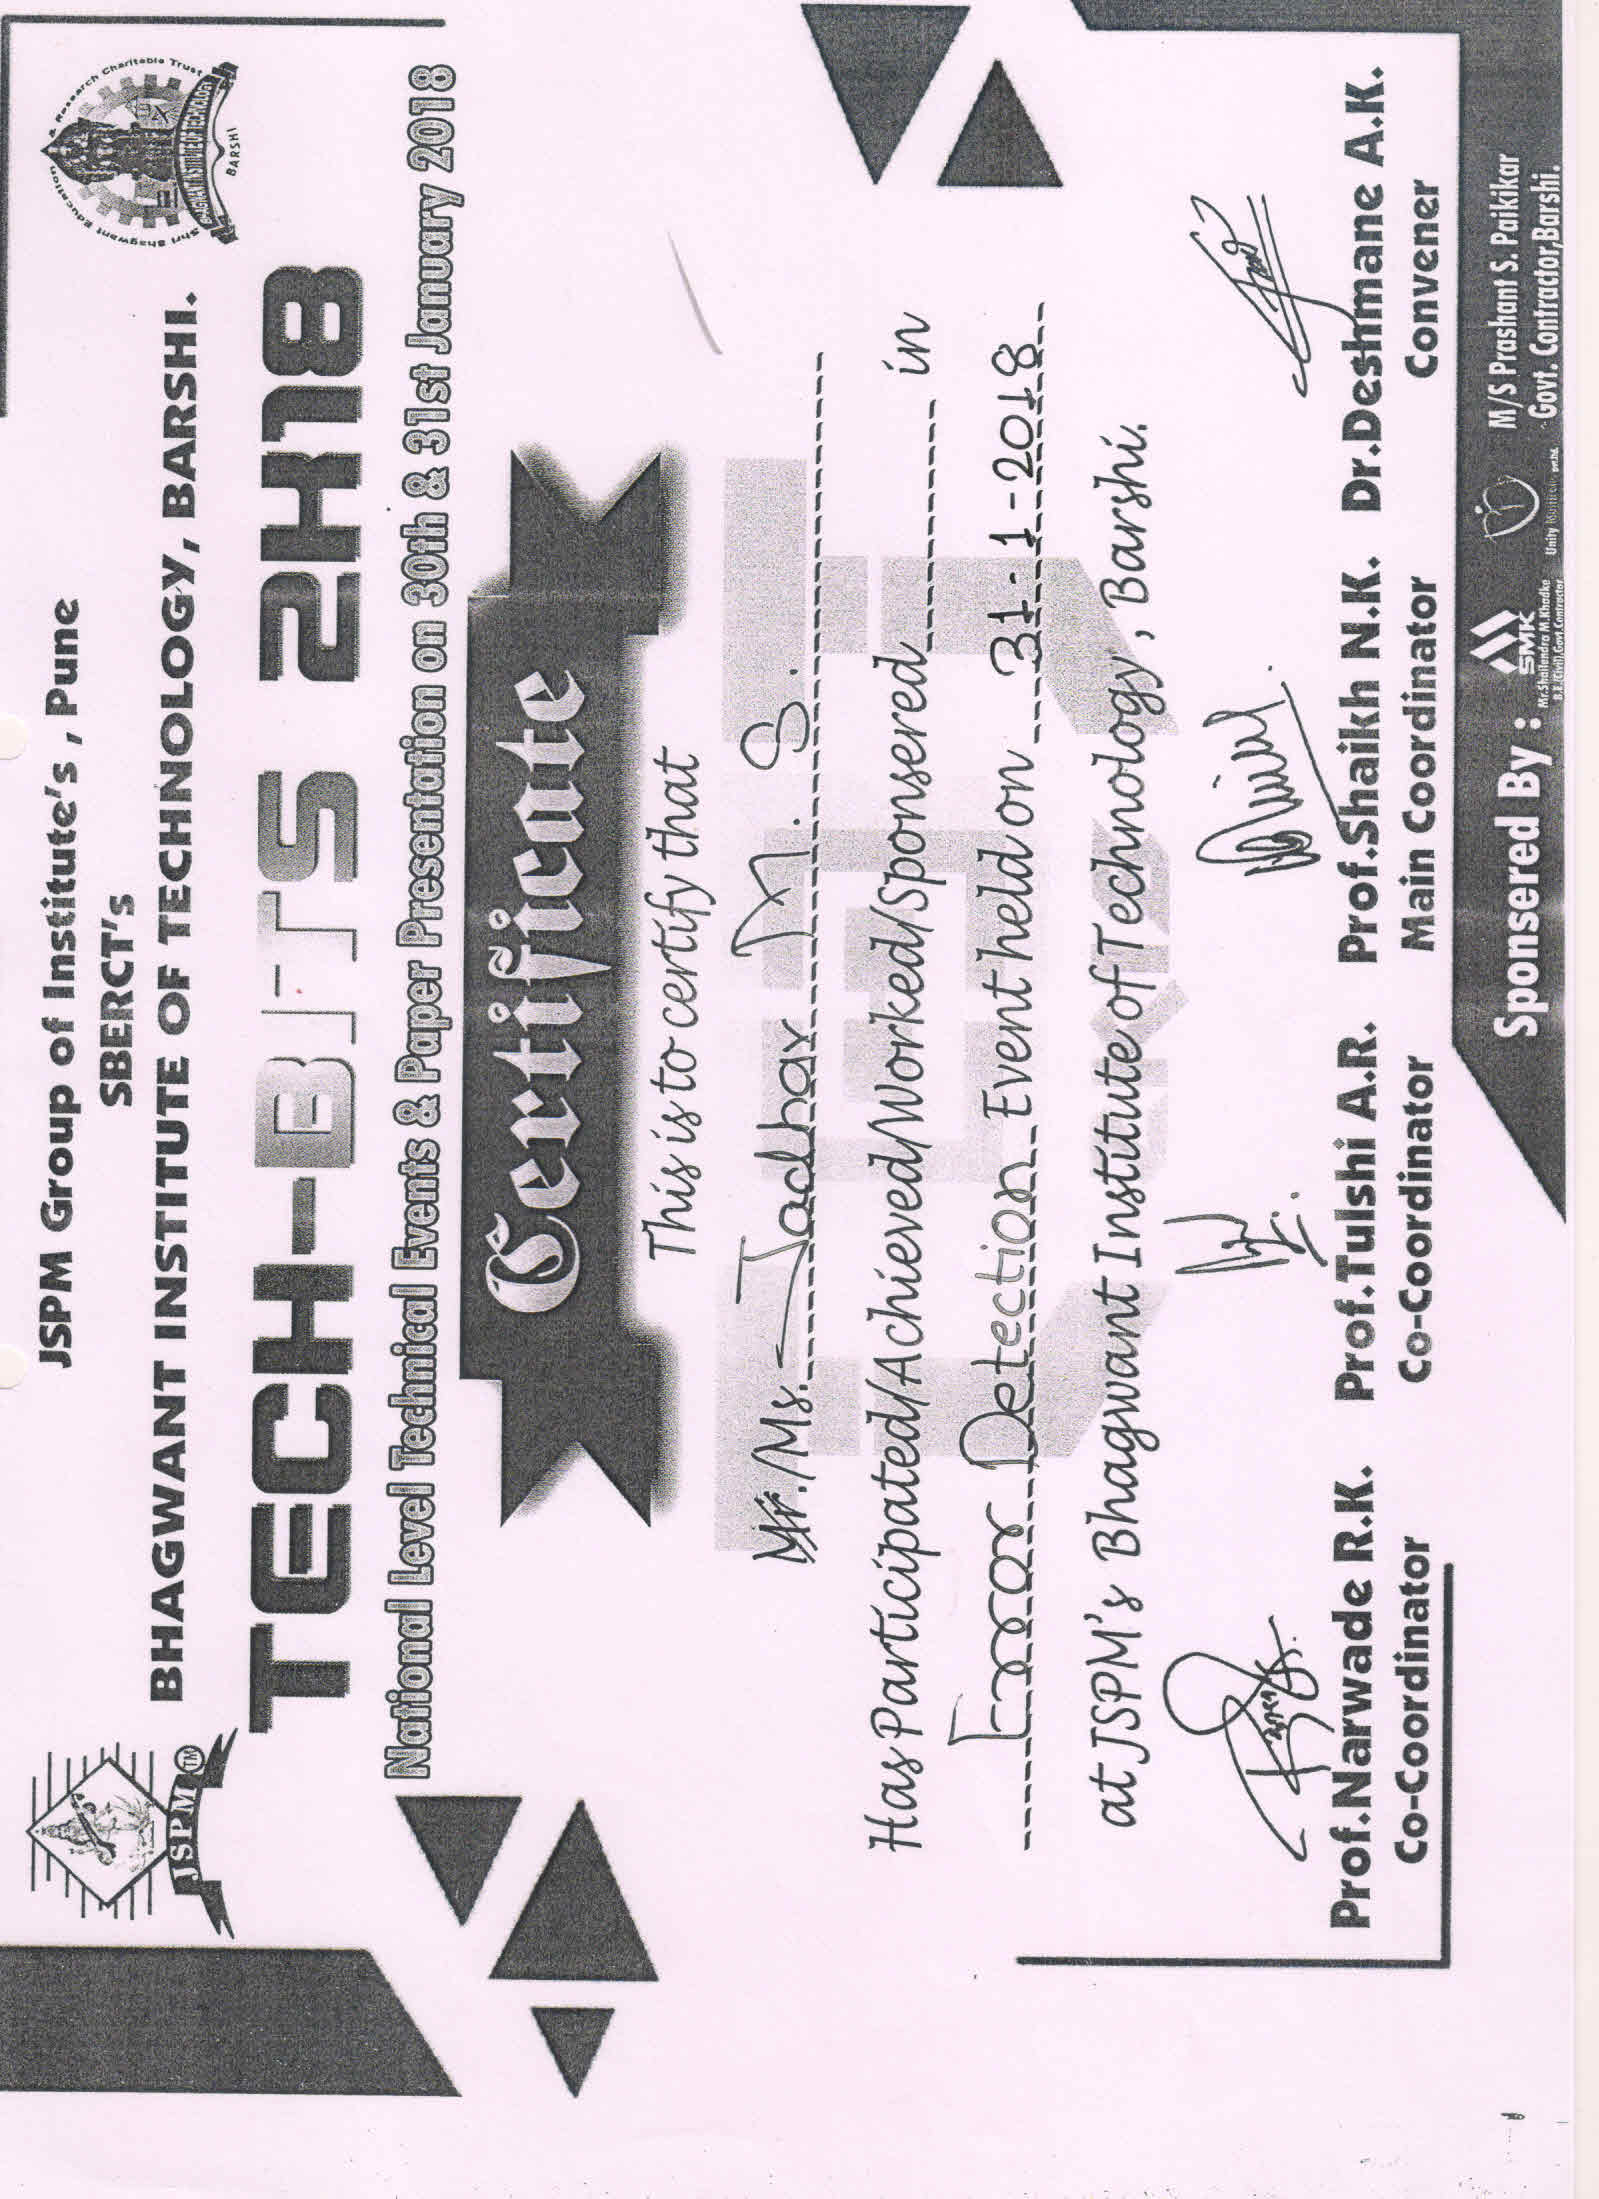 JSPM Group of Institute's , Pune
SBERCT's
BHAGWANT INSTITUTE OF TECHNOLOGY, BARSHI.
JSPM TM
Shri Bhagwant Education & Research Charitable Trust
BHAGWANT INSTITUTE OF TECHNOLOGY
BARSHI
TECH-BITS 2K18
National Level Technical Events & Paper Presentation on 30th & 31st January 2018
Certificate
This is to certify that
Mr./Ms. Jadhav M. S.
Has Participated/Achieved/Worked/Sponsered in
Error Detection Event held on 31-1-2018
at JSPM's Bhagwant Institute of Technology, Barshi.
Prof.Narwade R.K. Prof.Tulshi A.R. Prof.Shaikh N.K. Dr.Deshmane A.K.
Co-Coordinator Co-Coordinator Main Coordinator Convener
Sponsered By :
SMK
Mr.Shailendra M.Khadke
B.E.(Civil),Govt.Contractor
Unity
M/S Prashant S. Paikikar
Govt. Contractor,Barshi.